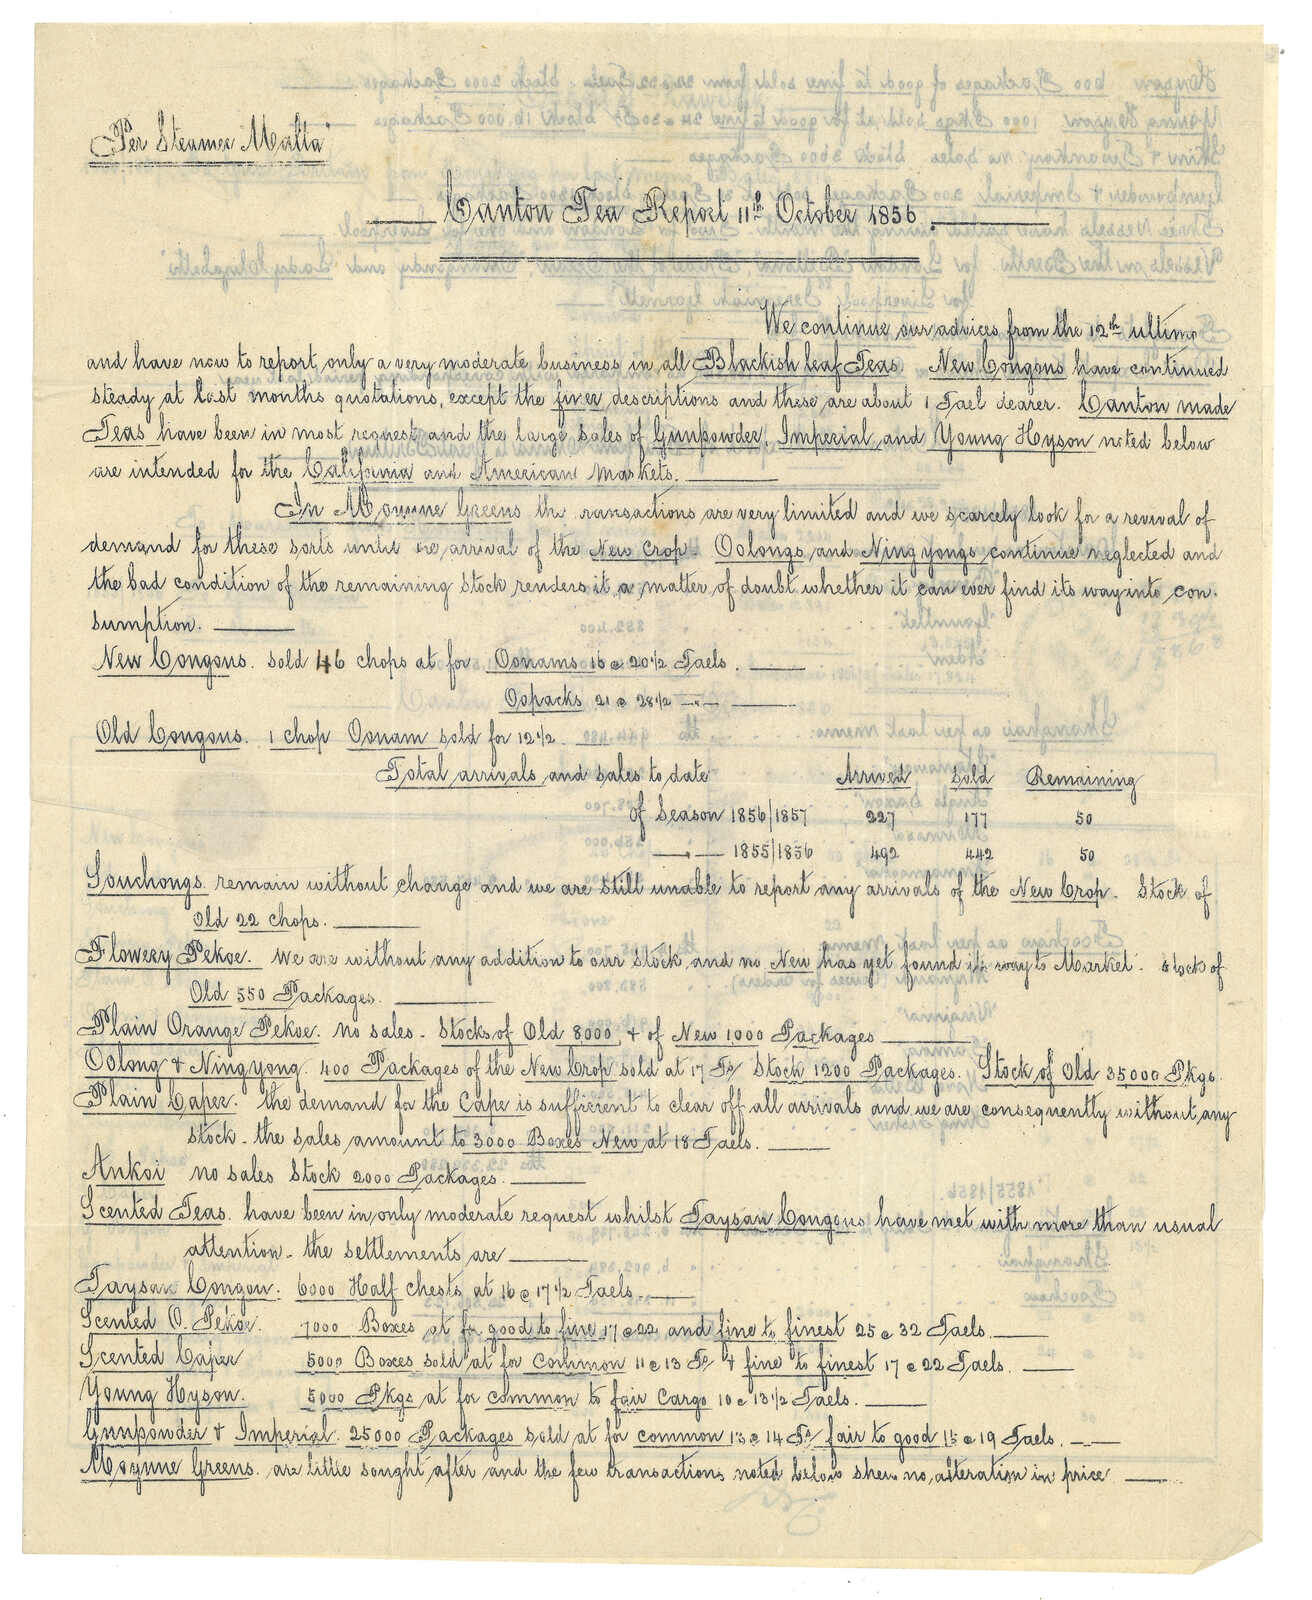 Per Steamer Malta
Canton Tea Report 11th October 1856.
We continue our advices from the 12th ultimo
and have now to report only a very moderate business in all Blackish leaf Teas. New Congous have continued
steady at last months quotations, except the finer descriptions and these are about 1 Tael dearer. Canton made
Teas have been in most request and the large sales of Gunpowder, Imperial and Young Hyson noted below
are intended for the California and American Markets.
In Moyune Greens the transactions are very limited and we scarcely look for a revival of
demand for these sorts until the arrival of the New Crop. Oolongs and Ningyongs continue neglected and
the bad condition of the remaining stock renders it a matter of doubt whether it can ever find its way into con-
sumption.
New Congous. sold 46 chops at for Oonams 16 @ 20 1/2 Taels.
Oopacks 21 @ 28 1/2 —"—
Old Congous. 1 chop Oonam sold for 12 1/2
Total arrivals and sales to date Arrived Sold Remaining
of Season 1856/1857 227 177 50
—"— 1855/1856 492 442 50
Souchongs remain without change and we are still unable to report any arrivals of the New Crop. Stock of
Old 22 chops.
Flowery Pekoe. We are without any addition to our stock and no New has yet found its way to Market. Stock of
Old 550 Packages.
Plain Orange Pekoe. no sales. Stocks of Old 8000 & of New 1000 Packages
Oolong & Ningyong. 400 Packages of the New Crop sold at 17 Ts Stock 1200 Packages. Stock of Old 35000 Pkgs.
Plain Caper. the demand for the Cape is sufficient to clear off all arrivals and we are consequently without any
stock. the sales amount to 3000 Boxes New at 18 Taels.
Ankoi no sales Stock 2000 Packages.
Scented Teas. have been in only moderate request whilst Taysan Congous have met with more than usual
attention. the settlements are
Taysan Congou. 6000 Half chests at 16 @ 17 1/2 Taels.
Scented O. Pekoe. 7000 Boxes at for good to fine 17 @ 22 and fine to finest 25 @ 32 Taels.
Scented Caper 5000 Boxes sold at for common 11 @ 13 Ts & fine to finest 17 @ 22 Taels.
Young Hyson. 5000 Pkgs at for common to fair Cargo 10 @ 13 1/2 Taels.
Gunpowder & Imperial. 25000 Packages sold at for common 13 @ 14 Ts fair to good 15 @ 19 Taels.
Moyune Greens. are little sought after and the few transactions noted below shew no alteration in price